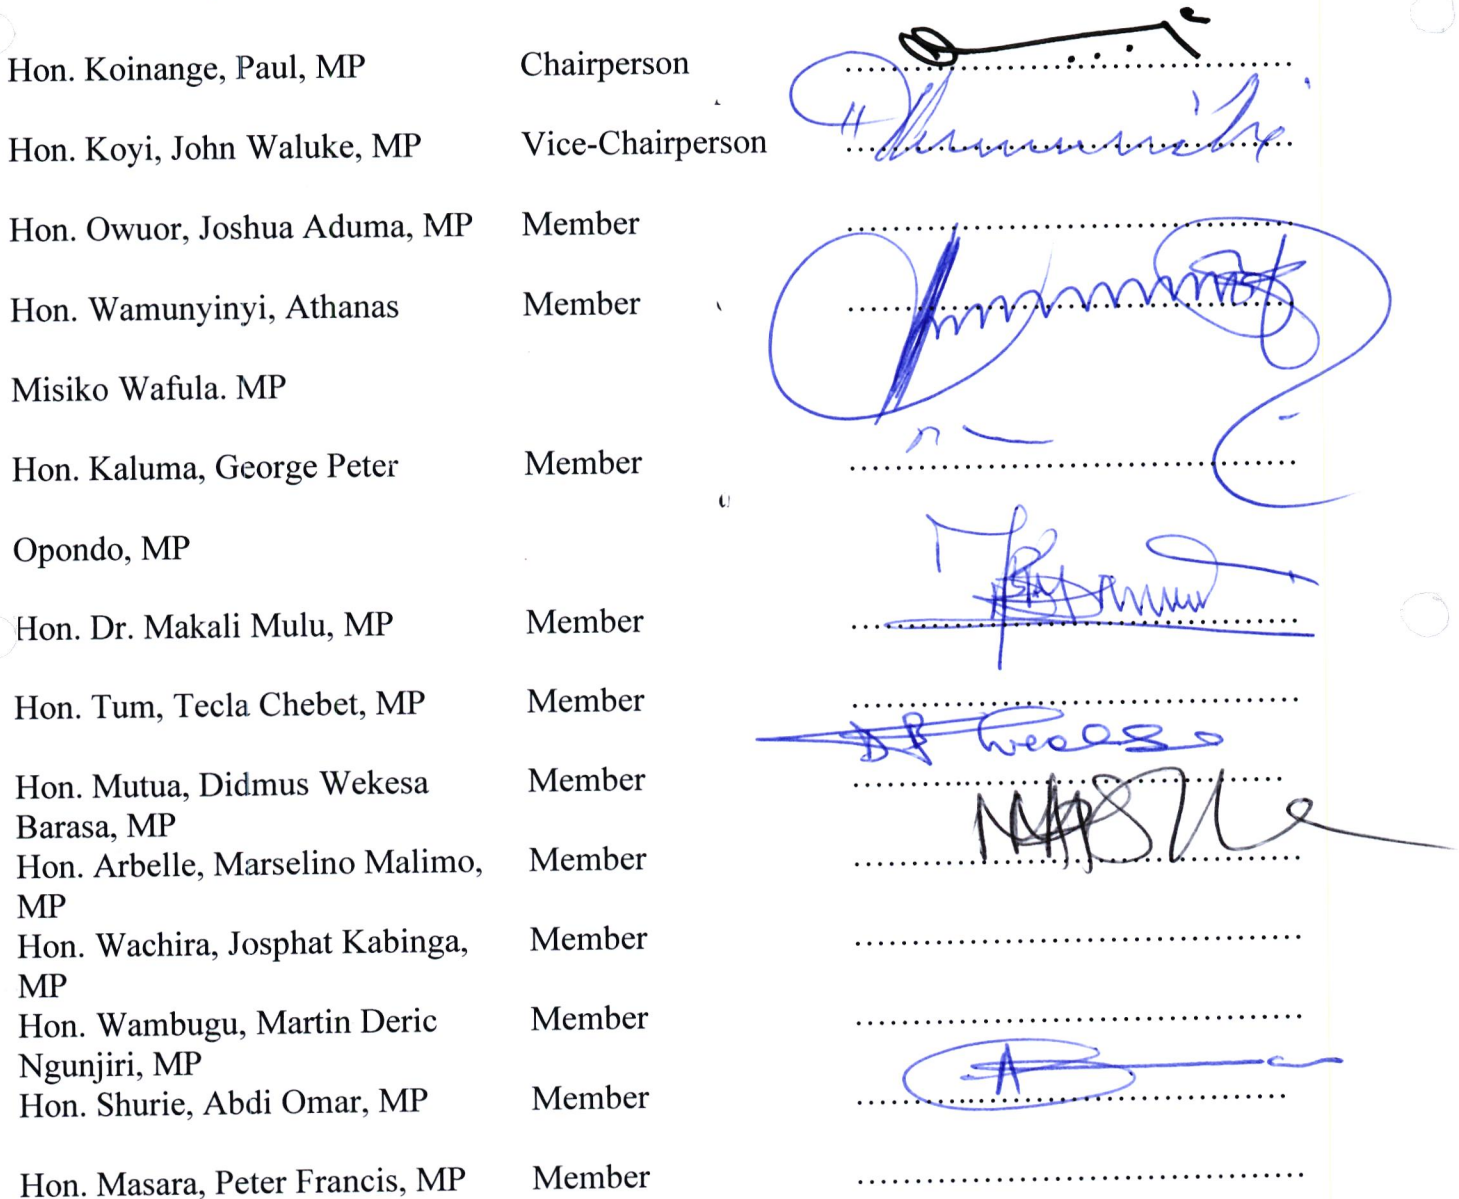 Hon. Koinange, Paul, MP Chairperson ........................................
Hon. Koyi, John Waluke, MP Vice-Chairperson ........................................
Hon. Owuor, Joshua Aduma, MP Member ........................................
Hon. Wamunyinyi, Athanas Member ........................................
Misiko Wafula. MP
Hon. Kaluma, George Peter Member ........................................
Opondo, MP
Hon. Dr. Makali Mulu, MP Member ........................................
Hon. Tum, Tecla Chebet, MP Member ........................................
Hon. Mutua, Didmus Wekesa Member ........................................
Barasa, MP
Hon. Arbelle, Marselino Malimo, Member ........................................
MP
Hon. Wachira, Josphat Kabinga, Member ........................................
MP
Hon. Wambugu, Martin Deric Member ........................................
Ngunjiri, MP
Hon. Shurie, Abdi Omar, MP Member ........................................
Hon. Masara, Peter Francis, MP Member ........................................